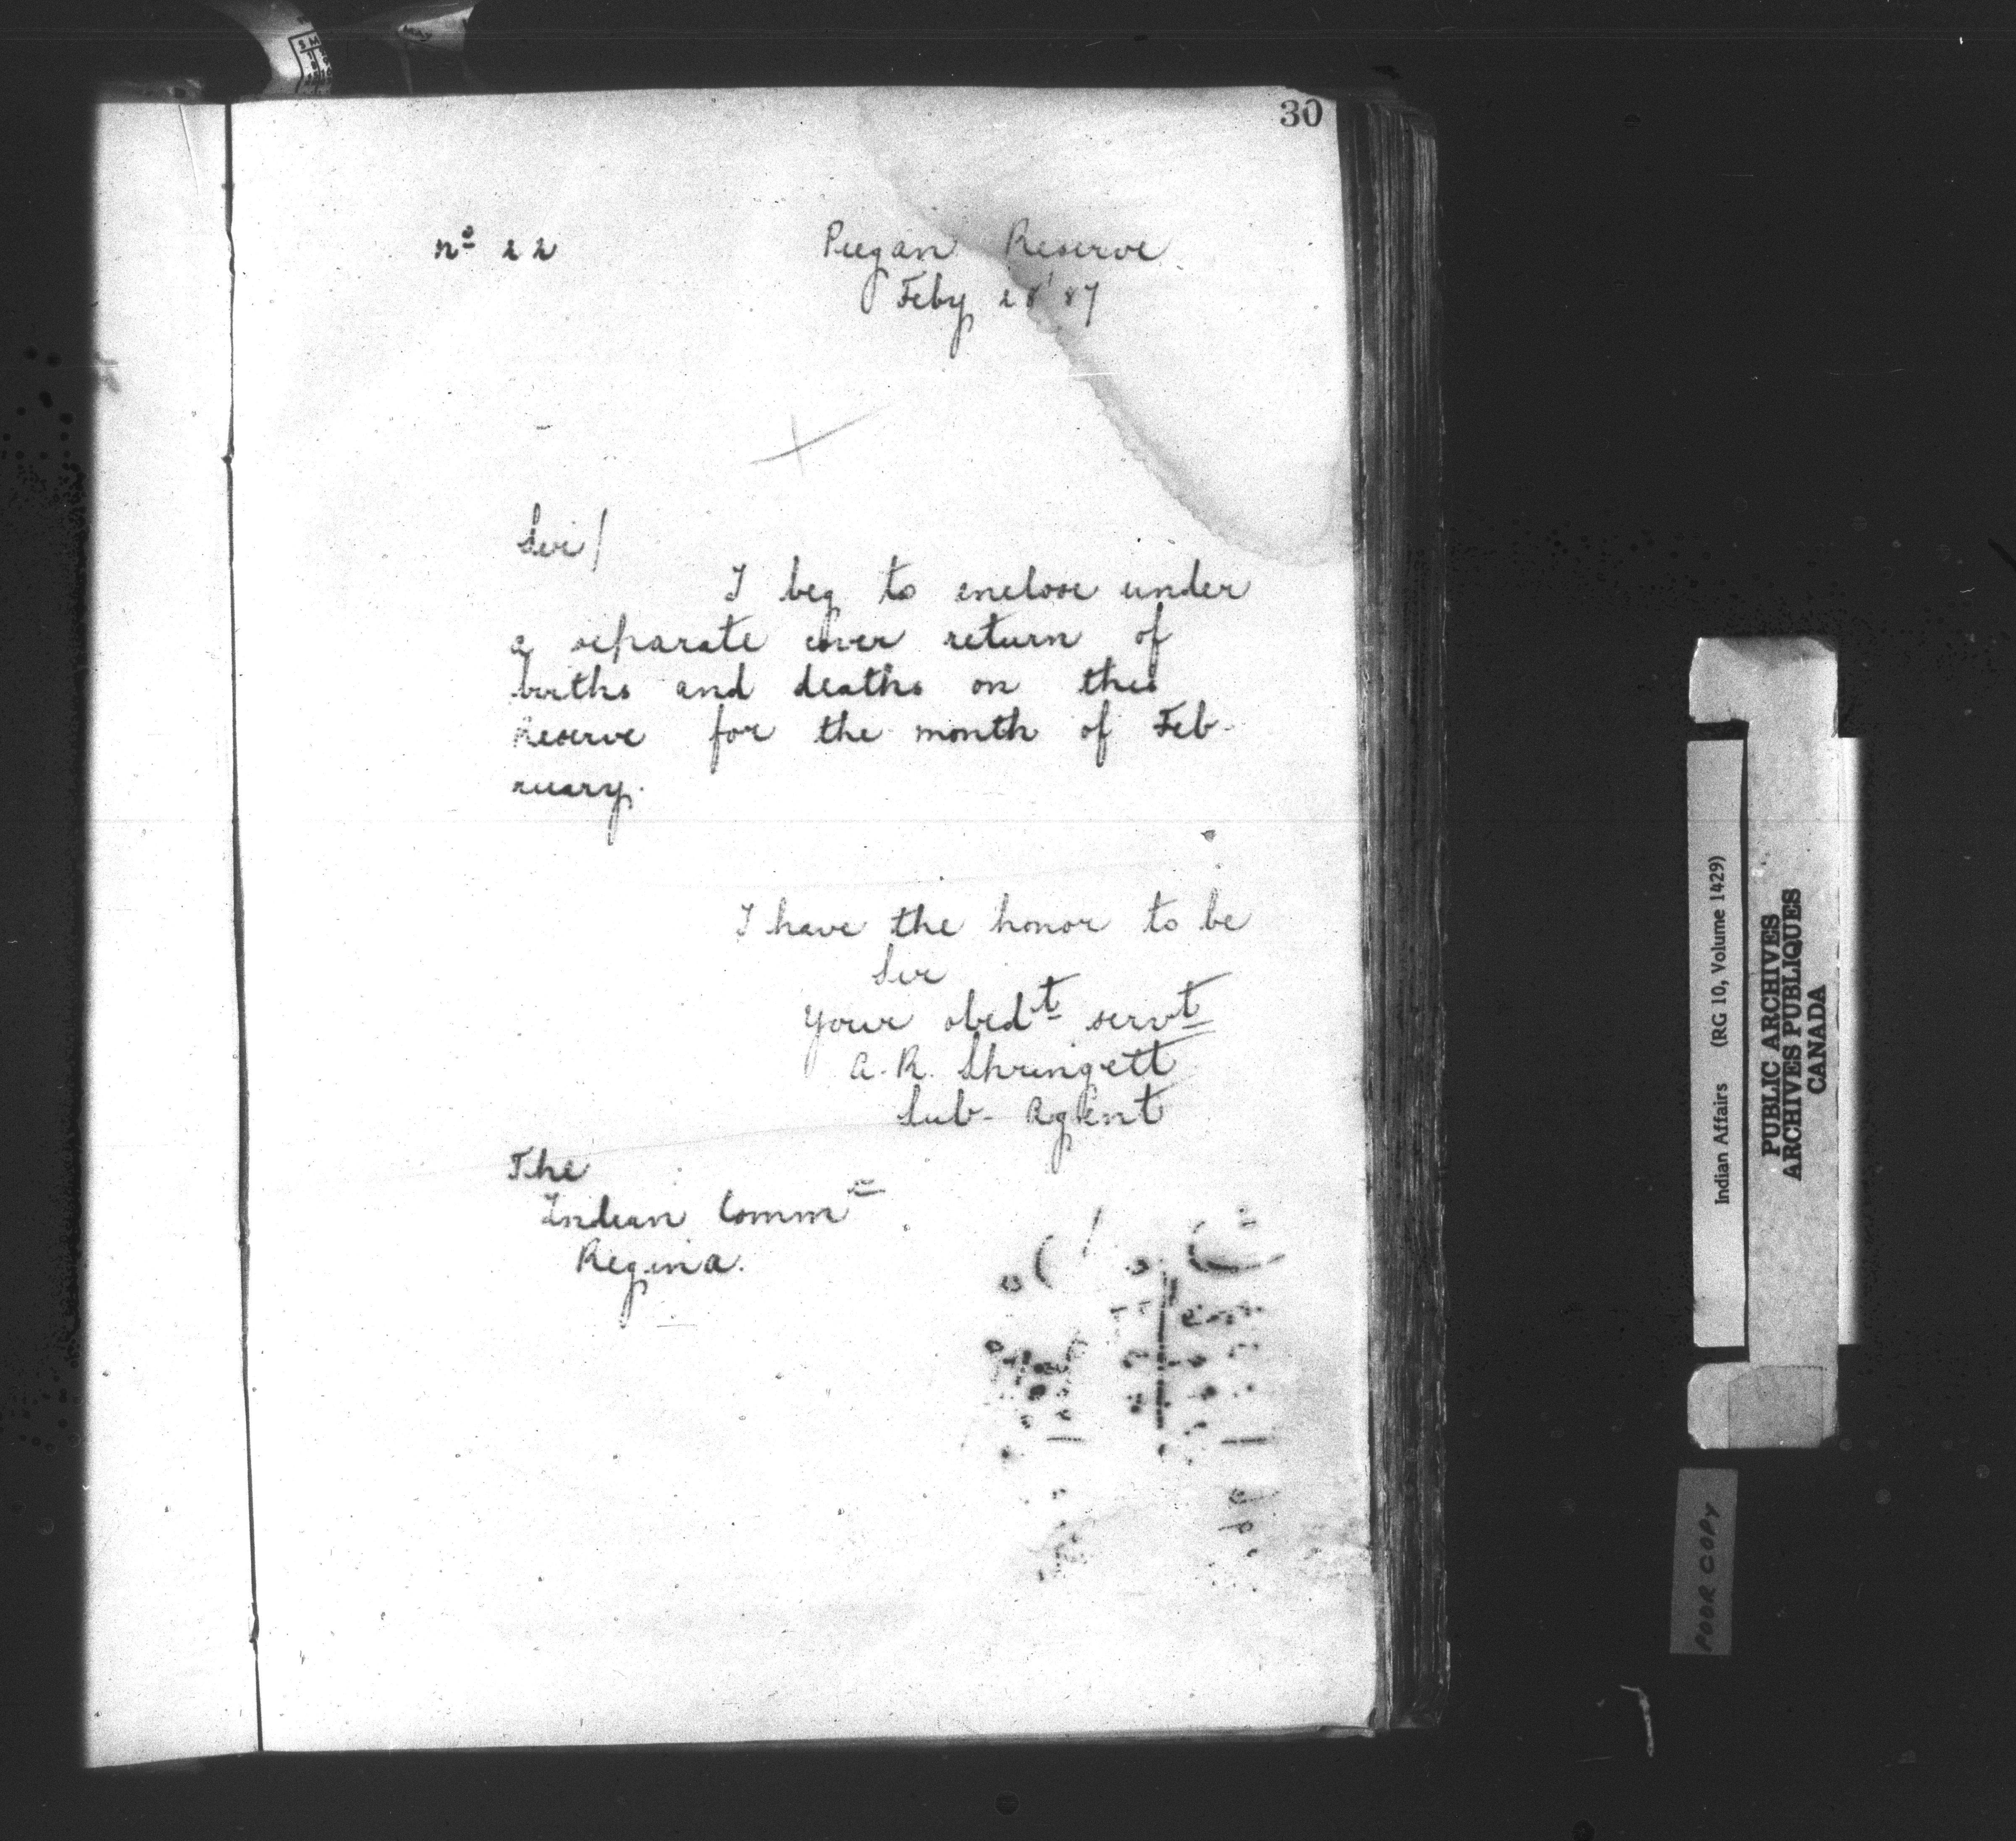 30
No 22
Peigan Reserve
Feby 28' 87
Sir/
I beg to enclose under
a separate cover return of
births and deaths on this
Reserve for the month of Feb-
ruary.
I have the honor to be
Sir
Your obedt servt
A. R. Springett
Sub-Agent
The
Indian Commr
Regina.
Indian Affairs (RG 10, Volume 1429)
PUBLIC ARCHIVES
ARCHIVES PUBLIQUES
CANADA
POOR COPY